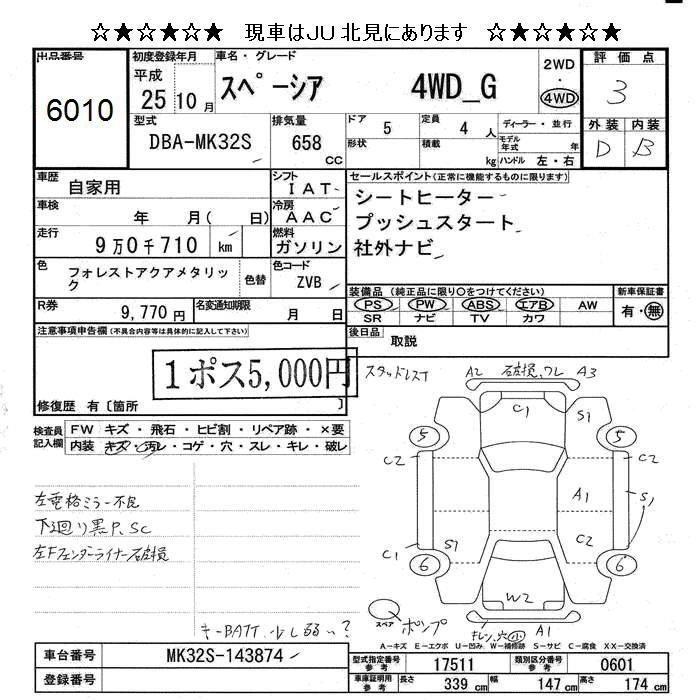 ☆★☆★☆★ 現車はJU北見にあります ☆★☆★☆★
出品番号
6010
初度登録年月
平成
25年10月
車名・グレード
スペーシア 4WD_G
2WD
・
4WD
評価点
3
外装 内装
D B
型式
DBA-MK32S
排気量
658
CC
ドア 5
定員 4 人
形状
積載 kg
ディーラー・並行
モデル年式 年
ハンドル 左・右
車歴
自家用
シフト
IAT
車検
年 月( 日)
冷房
AAC
走行
9万0千710 km
燃料
ガソリン
色
フォレストアクアメタリック
色替
色コード
ZVB
R券
9,770 円
名変通知期限
月 日
セールスポイント(正常に機能するものに限ります)
シートヒーター
プッシュスタート
社外ナビ
装備品 (純正品に限り○をつけてください)
PS PW ABS エアB AW
SR ナビ TV カワ
新車保証書
有・無
後日品
取説
注意事項申告欄(不具合内容等は具体的に記入して下さい)
1ポス5,000円
修復歴 有〔箇所 〕
検査員記入欄
FW キズ・飛石・ヒビ割・リペア跡・×要
内装 キズ・汚レ・コゲ・穴・スレ・キレ・破レ
左電格ミラー不良
下廻り黒P、SC
左Fフェンダーライナー石破損
キーBATT 少し弱い?
スタッドレスT
A2 石破損、ワレ A3
C1
S1
5 5
C2 C2
A1
S1
C1 S1 C2
6 6
W2
スペア
ポンプ
キレ、穴小 A1
A-キズ E-エクボ U-凹み W-補修跡 S-サビ C-腐食 XX-交換済
車台番号
MK32S-143874
登録番号
型式指定番号 参考
17511
類別区分番号 参考
0601
車庫証明用 参考
長さ 339 cm
幅 147 cm
高さ 174 cm